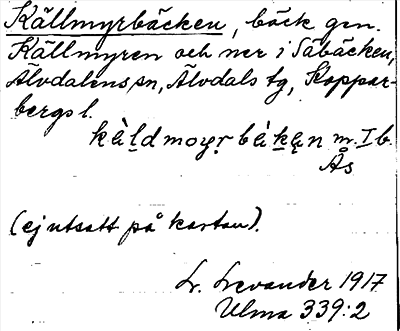 Källmyrbäcken, bäck gen.
Källmyren och ner i Säbäcken,
Älvdalens sn, Älvdals tg, Koppar-
bergs l.
m. I b.
Ås
(ej utsatt på kartan).
L. Levander 1917
Ulma 339:2